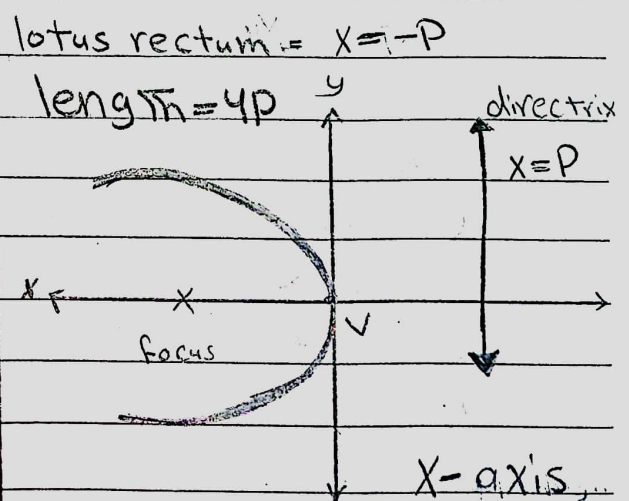 lotus rectum = x=-P
length=4p
y
directrix
x=P
x
V
focus
X-axis